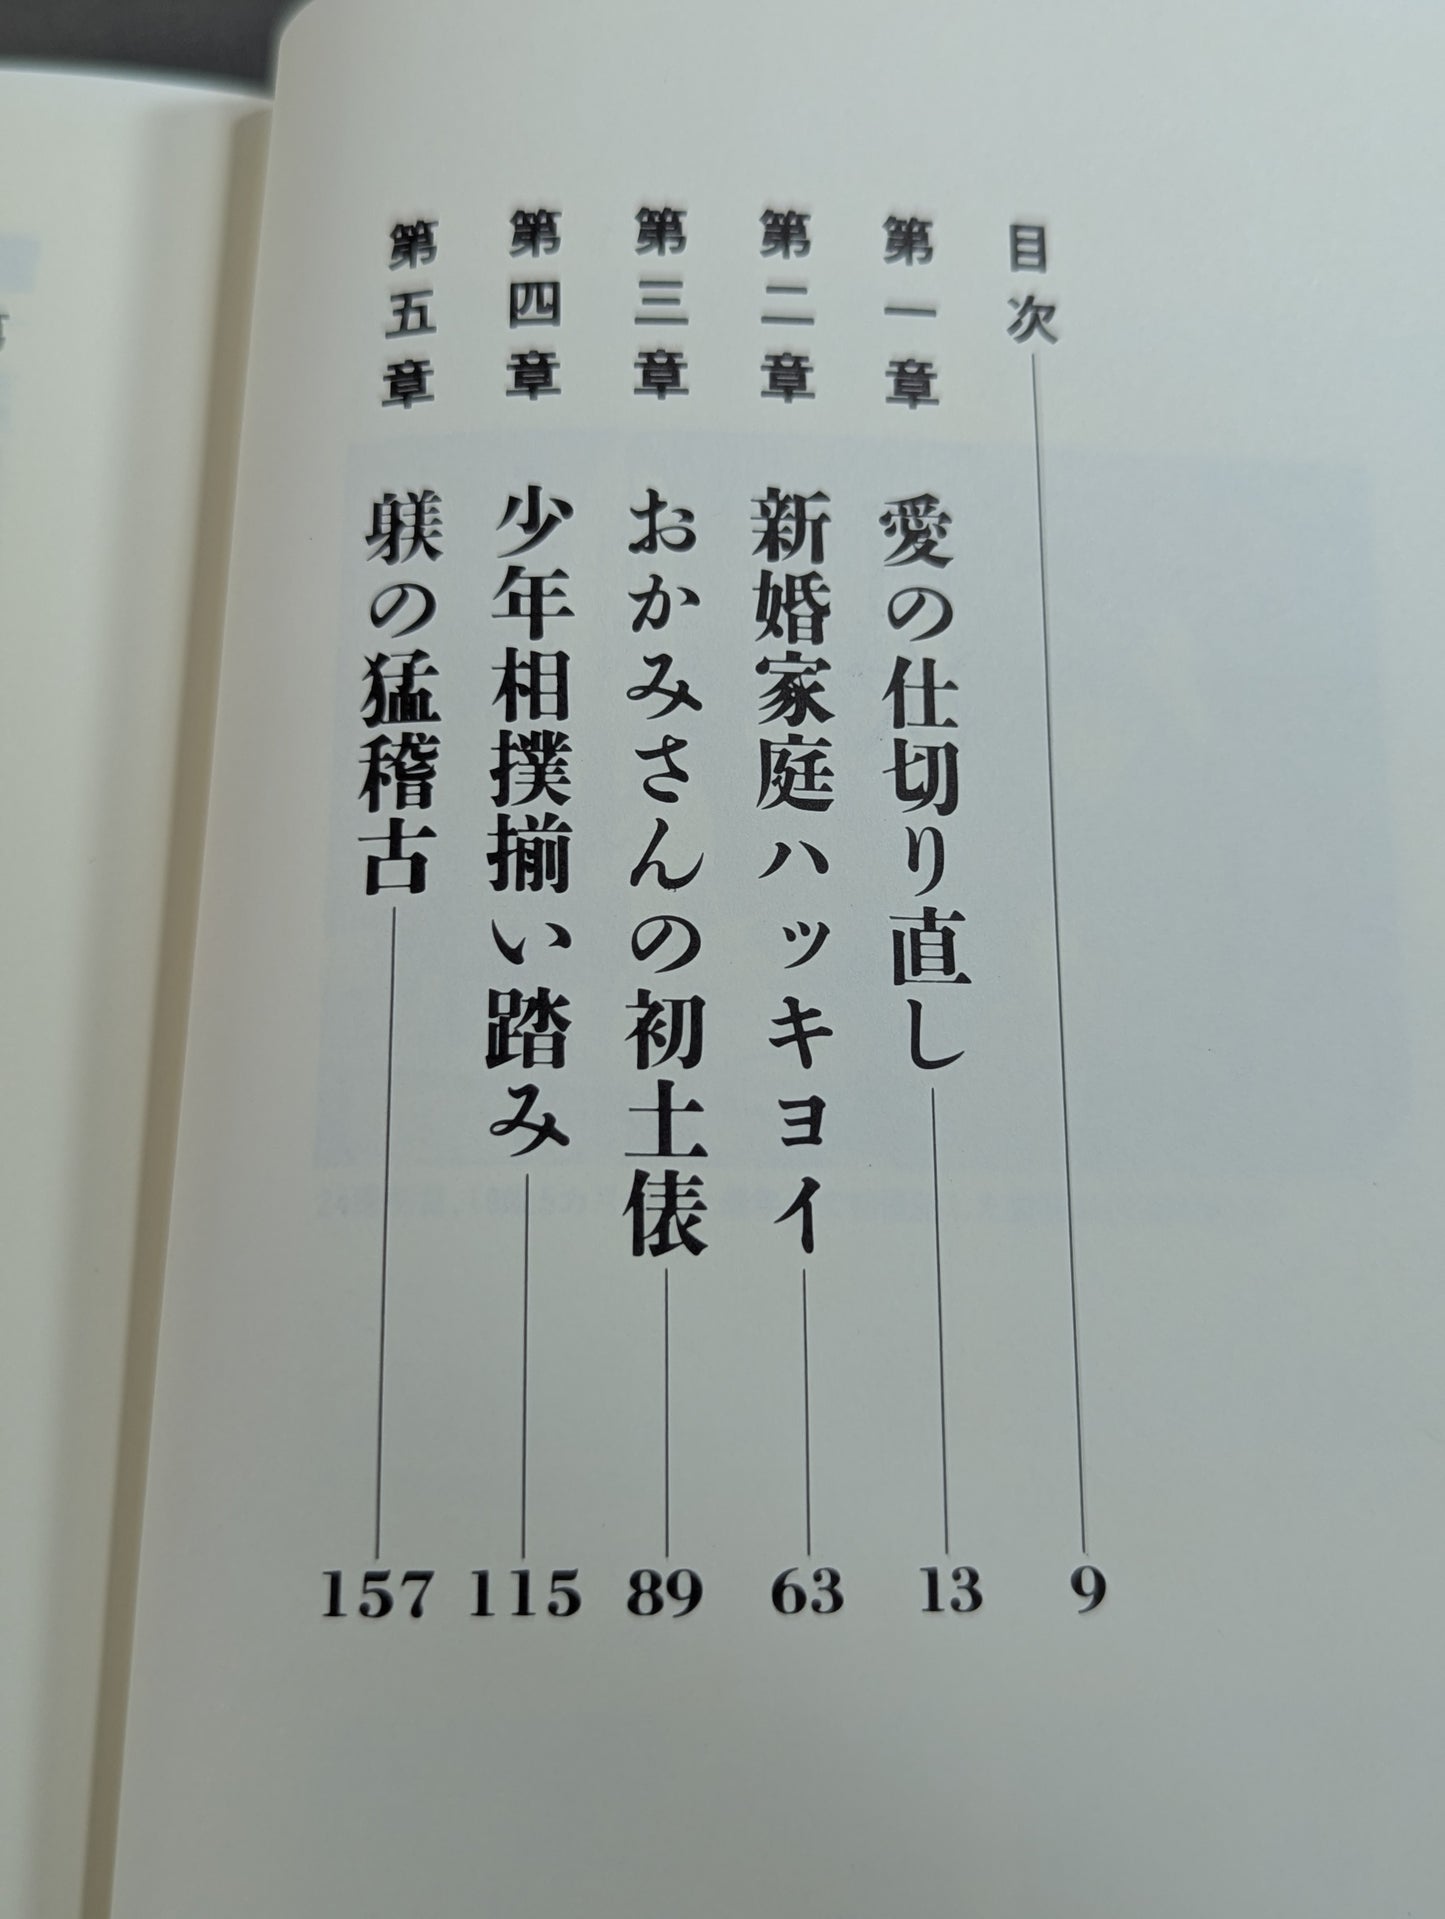 目次 9
第一章 愛の仕切り直し 13
第二章 新婚家庭ハッキヨイ 63
第三章 おかみさんの初土俵 89
第四章 少年相撲揃い踏み 115
第五章 躾の猛稽古 157